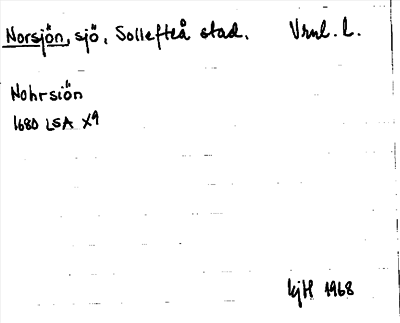 Norsjön, sjö, Sollefteå stad. Vrml. L.
Nohrsiön
1680 LSA X9
1968